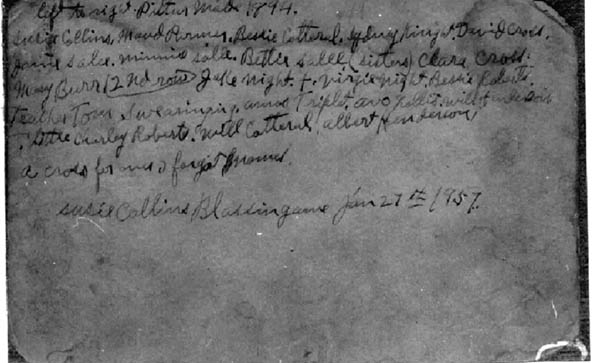 left to right. Pictur Made 1894.
Susie Collins, Maud Rormer, Bessie Cotteral, Sydney Knight, David Cross,
Janie Salee, Minnie Salee, Bettie Salee (sisters) Clara Cross.
Mary Burr (2nd row) Jake Night. + Virgie Night, Bessie Roberts.
Teacher Tom Swearingin, Amos Triplet, avo will
little Charley Roberts, Will Cotteral, albert Henderson,
a cross for ones I forgot names
Susie Collins Blassingame Jan 27th 1957.